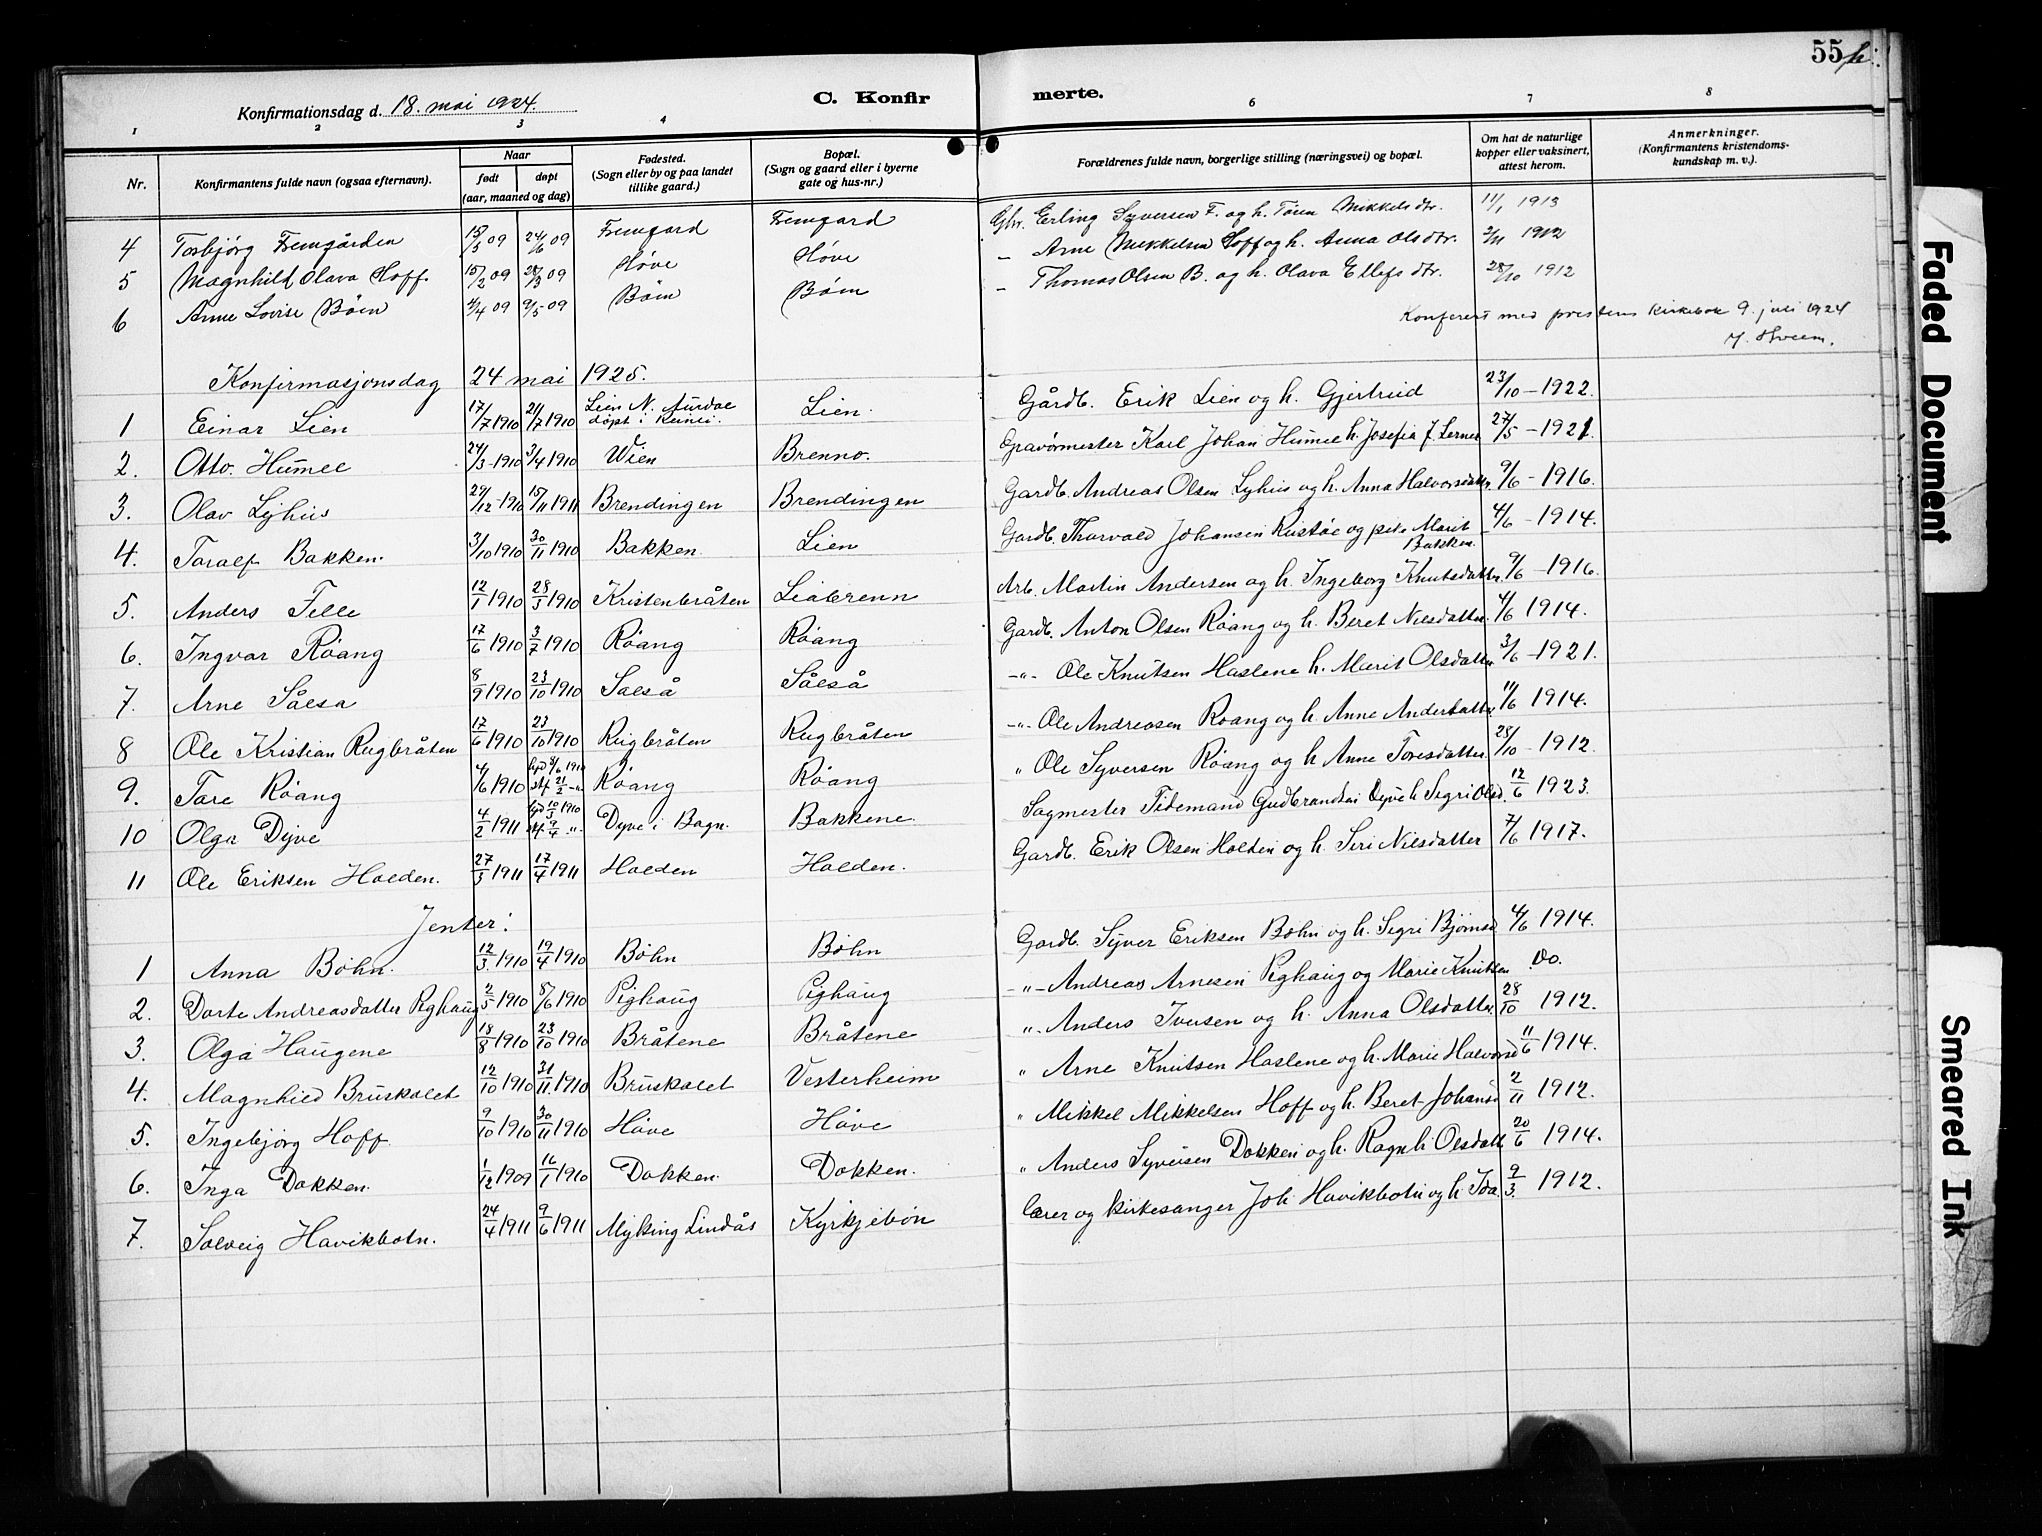 55 b.
Konfirmationsdag d. 18. mai 1924. C. Konfirmerte.
1 2 3 4 6 7 8
Nr. Konfirmantens fulde navn (ogsaa efternavn). Naar født døpt (aar, maaned og dag) Fødested. (Sogn eller by og paa landet tillike gaard.) Bopæl. (Sogn og gaard eller i byerne gate og hus-nr.) Forældrenes fulde navn, borgerlige stilling (næringsvei) og bopæl. Om hat de naturlige kopper eller vaksinert, attest herom. Anmerkninger. (Konfirmantens kristendomskundskap m. v.).
4 Torbjørg Fremgården 15/5 09 24/6 09 Fremgard Fremgard Gbr. Erling Syversen F. og h. Tören Mikkelsdtr. 11/1 1913
5 Magnhild Olava Hoff 15/2 09 28/3 09 Høve Høve - Arne Mikkelsen Hoff og h. Anna Olsdtr. 2/11 1912
6 Anne Lovise Bøen 4/4 09 9/5 09 Bøen Bøen - Thomas Olsen B. og h. Olava Ellefsdtr. 28/10 1912
Konferert med prestens kirkebok 9. juli 1924
Konfirmasjonsdag 24 mai 1925.
1 Einar Lien 17/7 1910 21/7 1910 Lien N. Aurdal døpt i Reinli. Lien. Gårdb. Erik Lien og h. Gjertrud 23/10 - 1922.
2. Otto Humel 24/3 - 1910 3/4 1910 Wien Brenno. Gravørmester Karl Johan Humel h. Josefia f. Lerner 27/5 - 1921.
3. Olav Lyhus 29/12 - 1910 15/11 1911 Brendingen Brendingen Gardb. Andreas Olsen Lyhus og h. Anna Halvorsdatter 9/6 - 1916.
4. Toralf Bakken. 3/10 1910 30/11 1910 Bakken. Lien Gardb. Thorvald Johansen Rustøe og pike Marit Bakken. 4/6 - 1914.
5. Anders Felle 12/1 1910 28/3 1910 Kristenbråten Liabrenn Arb. Martin Andersen og h. Ingeborg Knutsdatter 9/6 - 1916.
6. Ingvar Röang 17/6 1910 3/7 1910 Röang Röang Gardb. Anton Olsen Röang og h. Beret Nilsdatter 4/6 1914.
7. Arne Sålsa 8/9 1910 23/10 1910 Salså Sålså -"- Ole Knutsen Haslene h. Marit Olsdatter 3/6 - 1921.
8 Ole Kristian Rugbråten 17/6 1910 23/10 1910 Rugbråten Rugbråten -"- Ole Andreasen Röang og h. Anne Andersdatter 11/6 1914.
9. Tore Röang 4/6 1910 Röang Röang " Ole Syversen Röang og h Anne Toresdatter 28/10 - 1912.
10 Olga Dyve 4/2 1911 Dyve i Bagn. Bakkene. Sagmester Tidemand Gudbrandsen Dyve h Segri Olsd. 12/6 1923.
11 Ole Eriksen Holden. 27/3 1911 17/4 1911 Holden Holden. Gardb. Erik Olsen Holden og h. Siri Nilsdatter 7/6 1917.
Jenter:
1 Anna Böhn. 12/3 1910 19/4 1910 Böhn Böhn Gardb. Syver Eriksen Böhn og h. Segri Björnsd 4/6 1914.
2. Dorte Andreasdatter Pighaug 2/5 1910 8/6 1910 Pighaug Pighaug -"- Andreas Arnesen Pighaug og Marie Knutsen Do.
3. Olga Haugene 18/8 1910 23/10 1910 Bråtene Bråtene "- Anders Iversen og h. Anna Olsdatter 28/10 1912.
4. Magnhild Bruskolet 12/10 1910 31/11. 1910 Bruskolet Vesterheim " Arne Knutsen Haslene og h. Marie Halvorsd 11/6 1914.
5. Ingebjörg Hoff 9/10 1910 30/11 1910 Höve Höve " Mikkel Mikkelsen Hoff og h. Beret Johansd 2/11 1912.
6. Inga Dokken. 1/12 1909 16/1 1910 Dokken. Dokken. " Anders Syversen Dokken og h. Ragnh Olsdatt 20/6 1914.
7. Solveig Havikbotn. 24/4 1911 9/6 1911 Myking Lindås Kyrkjebön Lærer og kirkesanger Joh Havikbotn og h Ida. 9/3. 1912.
Faded Document
Smeared Ink